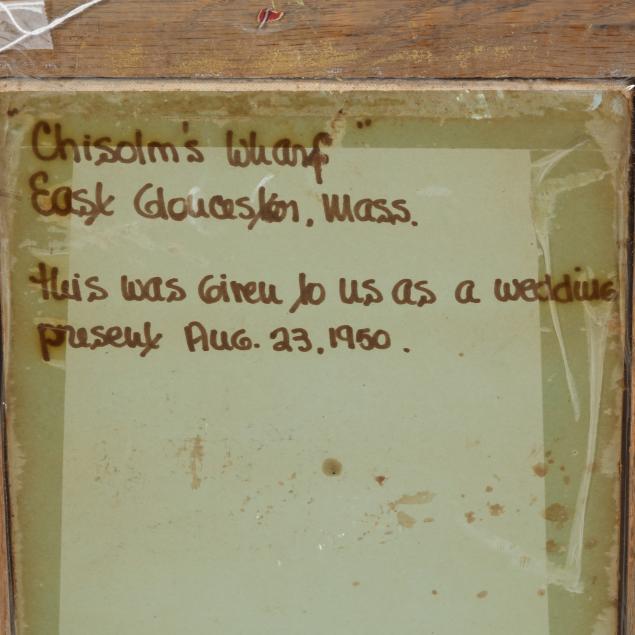 Chisolm's Wharf"
East Gloucester, Mass.
this was Given to us as a wedding
present Aug. 23, 1950.